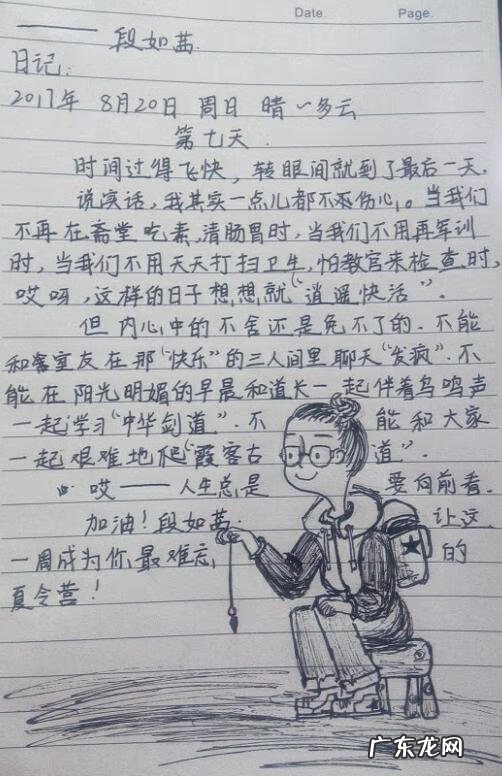 Date. Page.
段如茜.
日记:
2017年 8月20日 周日 晴~多云
第七天.
时间过得飞快，转眼间就到了最后一天.
说实话，我其实一点儿都不伤心。当我们
不再在斋堂吃素,清肠胃时,当我们不用再军训
时,当我们不用天天打扫卫生,怕教官来检查时,
哎呀,这样的日子想想就"逍遥快活".
但内心中的不舍还是免不了的.不能
和室友在那"快乐"的三人间里聊天"发疯".不
能在阳光明媚的早晨和道长一起伴着鸟鸣声
一起学习"中华剑道".不能和大家
一起艰难地爬"霞客古道".
哎——人生总是要向前看.
加油!段如茜.让这
一周成为你最难忘的
夏令营!
广东龙网